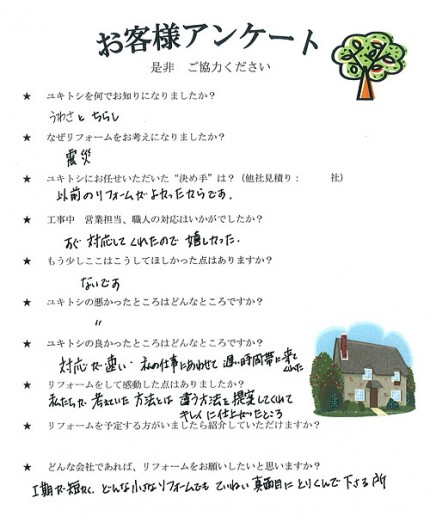 お客様アンケート
是非 ご協力ください
★ ユキトシを何でお知りになりましたか?
うわさと ちらし
★ なぜリフォームをお考えになりましたか?
震災
★ ユキトシにお任せいただいた“決め手”は?(他社見積り: 社)
以前のリフォームがよかったからです.
★ 工事中 営業担当、職人の対応はいかがでしたか?
すぐ 対応してくれたので 嬉しかった.
★ もう少しここはこうしてほしかった点はありますか?
ないです
★ ユキトシの悪かったところはどんなところですか?
〃
★ ユキトシの良かったところはどんなところですか?
対応が速い. 私の仕事にあわせて 遅い時間帯に来てくれた
★ リフォームをして感動した点はありましたか?
私たちが 考えていた 方法とは 違う方法を 提案してくれて
キレイに仕上がったところ
★ リフォームを予定する方がいましたら紹介していただけますか?
★ どんな会社であれば、リフォームをお願いしたいと思いますか?
工期が短かく、どんな小さなリフォームでも ていねい 真面目に とりくんで 下さる 所